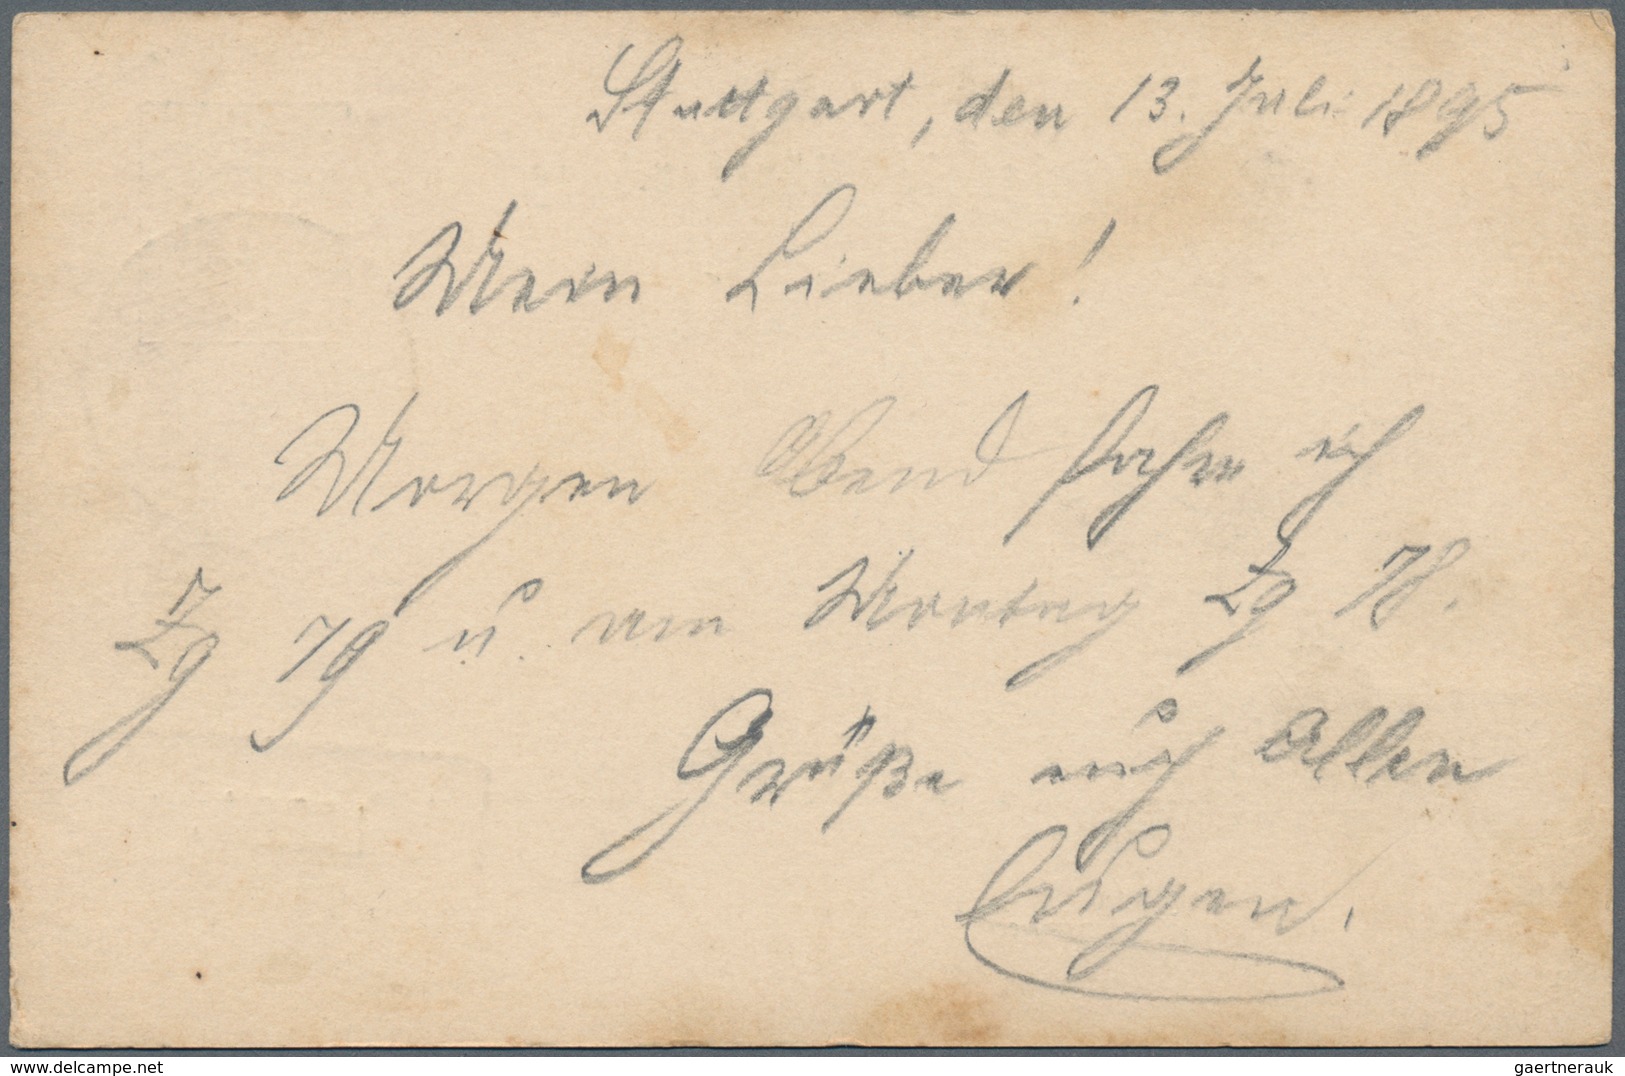 Stuttgart, den 13. Juli 1895
Mein Lieber!
Morgen Abend fahre ich
Zg 79 u. am Montag Zg 78.
Grüße euch Allen
Eugen.
www.delcampe.net
gaertnerauk